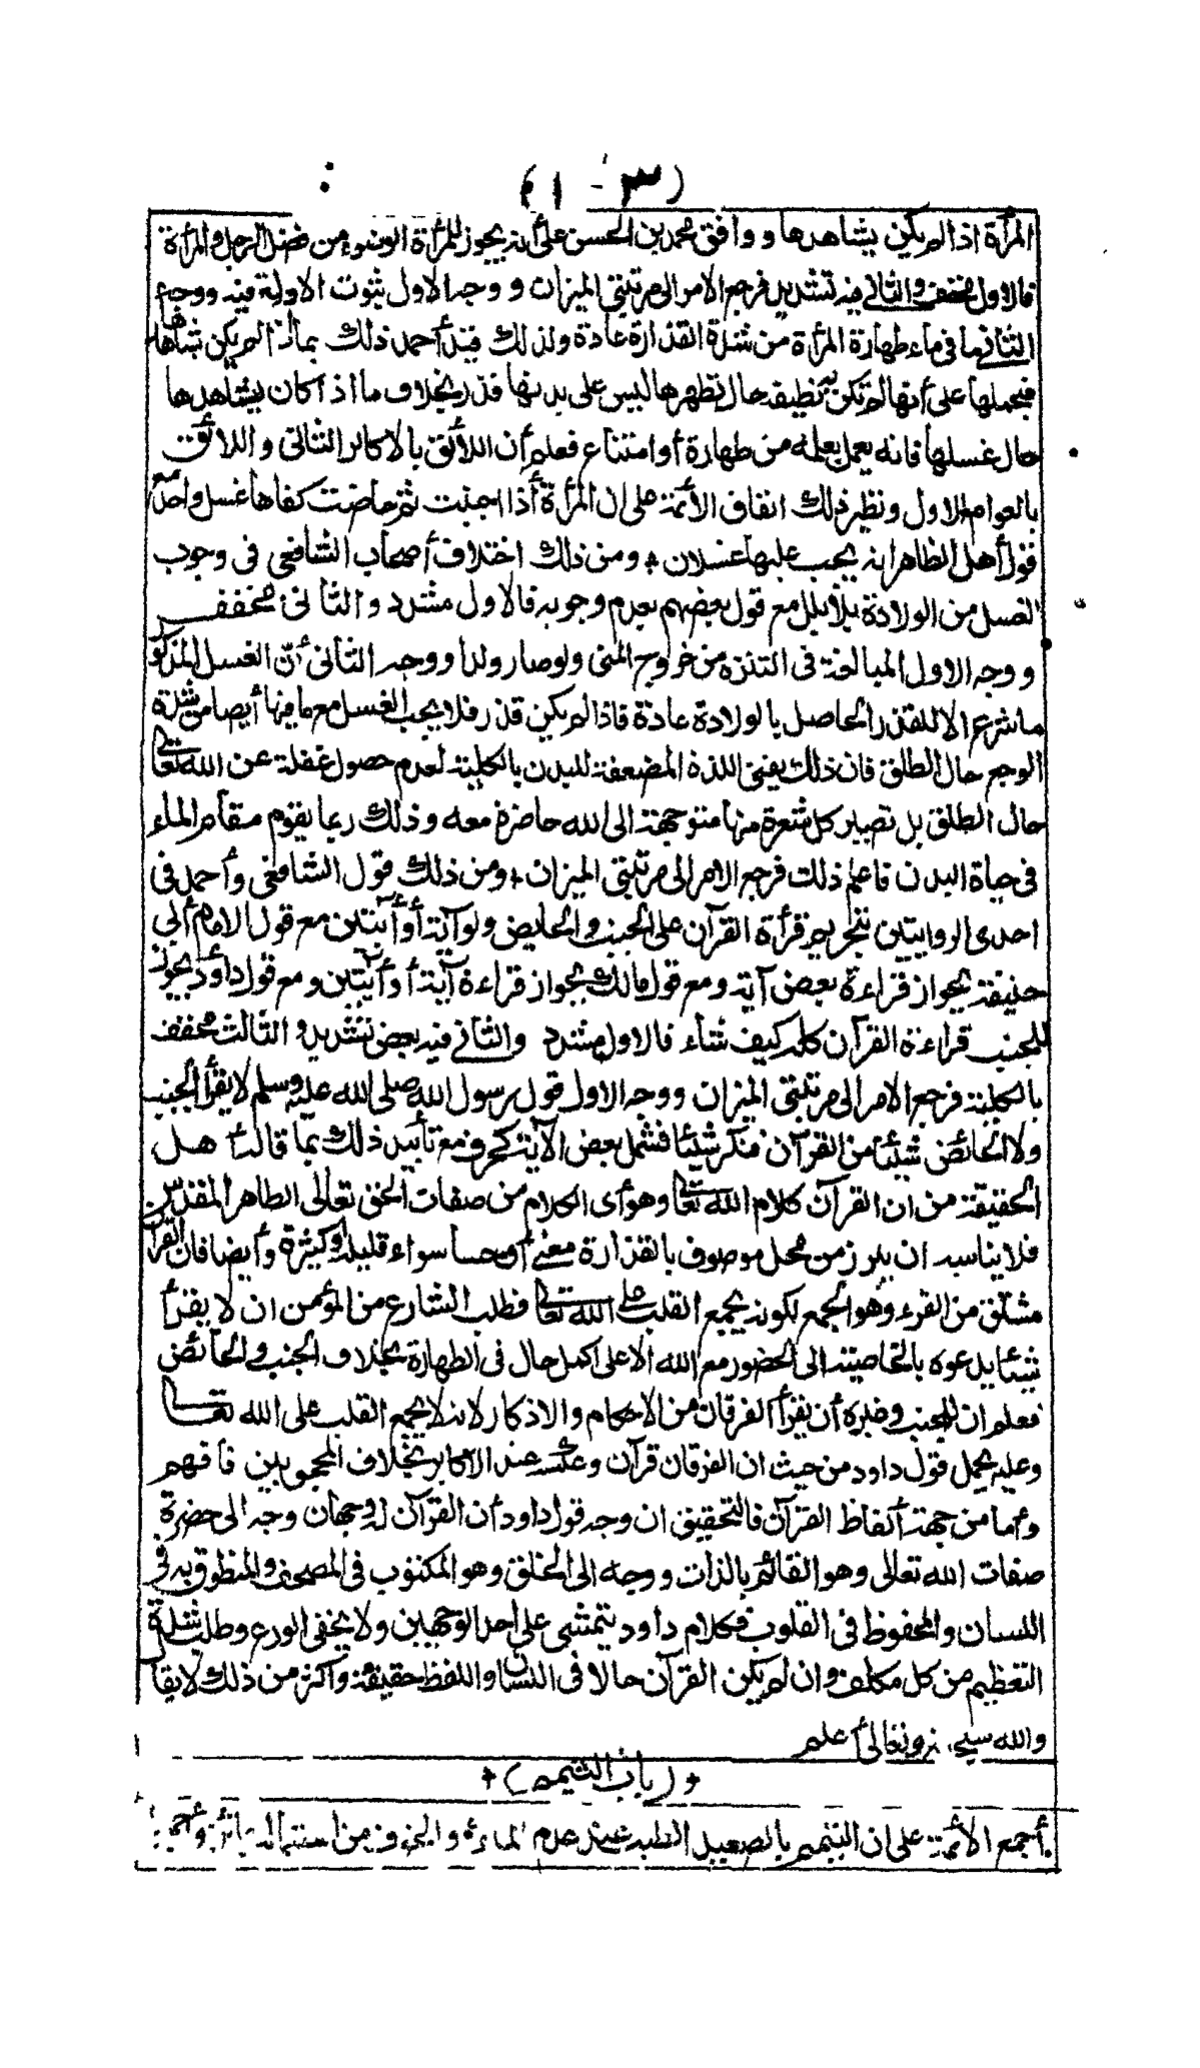 (١٠٣)
المرأة اذا لم يكن يشاهدها ووافق محمد بن الحسن على أنه يجوز للمرأة الوضوء من فضل الرجل والمرأة
فالاول مخفف والثاني فيه تشديد فرجع الامر الى مرتبتي الميزان ووجه الاول ثبوت الادلة فيه ووجه
الثاني ما في ماء طهارة المرأة من شدة القذارة عادة ولذلك قيد أحمد ذلك بما اذا لم يكن شاهدها
فيحملها على أنها لم تكن نظيفة حال تطهرها ليس على بدنها قذر بخلاف ما اذا كان يشاهدها
حال غسلها فانه يعمل بعلمه من طهارة أو امتناع فعلم أن اللائق بالاكابر الثاني واللائق
بالعوام الاول ونظير ذلك اتفاق الأئمة على ان المرأة أذا اجنبت ثم حاضت كفاها غسل واحد مع
قول أهل الظاهر انه يجب عليها غسلان * ومن ذلك اختلاف أصحاب الشافعي في وجوب
الغسل من الولادة بلا بلل مع قول بعضهم بعدم وجوبه فالاول مشدد والثاني مخفف
ووجه الاول المبالغة في التنزه من خروج المني ولو صار ولدا ووجه الثاني أن الغسل المذكور
ما شرع الا للقذر الحاصل بالولادة عادة فاذا لم يكن قذر فلا يجب الغسل مع ما فيها أيضا من شدة
الوجع حال الطلق فان ذلك يفني اللذة المضعفة للبدن بالكلية لعدم حصول غفلة عن الله تعالى
حال الطلق بل تصير كل شعرة منها متوجهة الى الله حاضرة معه وذلك ربما يقوم مقام الماء
في حياة البدن فاعلم ذلك فرجع الامر الى مرتبتي الميزان * ومن ذلك قول الشافعي وأحمد في
احدى الروايتين بتحريم قرأة القرآن على الجنب والحايض ولو آية أو آيتين مع قول الامام أبي
حنيفة بجواز قراءة بعض آية ومع قول مالك بجواز قراءة آية أو آيتين ومع قول داود يجوز
للجنب قراءة القرآن كله كيف شاء فالاول مشدد والثاني فيه بعض تشديد والثالث مخفف
بالكلية فرجع الامر الى مرتبتي الميزان ووجه الاول قول رسول الله صلى الله عليه وسلم لا يقرأ الجنب
ولا الحائض شيئا من القرآن فنكر شيئا فشمل بعض الآية كحرف مع تأييد ذلك بما قاله أهل
الحقيقة من ان القرآن كلام الله تعالى وهو أى الكلام من صفات الحق تعالى الطاهر المقدس
فلا يناسبه ان يبرز من محل موصوف بالقذارة معنى أو حسا سواء قليله وكثيره وأيضا فان القرآن
مشتق من القرء وهو الجمع لكونه يجمع القلب على الله تعالى فطلب الشارع من المؤمن ان لا يقرأ
شيئا يدعوه بالخاصية الى الحضور مع الله الا على اكمل حال في الطهارة بخلاف الجنب والحائض
فعلم ان للجنب وغيره أن يقرأ الفرقان من الاحكام والاذكار لانه لا يجمع القلب على الله تعالى
وعليه يحمل قول داود من حيث ان الفرقان قرآن وعكسه عند الاكابر بخلاف المحجوبين فافهم
وأما من جهة ألفاظ القرآن فالتحقيق ان وجه قول داود أن القرآن له وجهان وجه الى حضرة
صفات الله تعالى وهو القائم بالذات ووجه الى الخلق وهو المكتوب في المصحف والمنطوق به في
اللسان والمحفوظ في القلوب فكلام داود يتمشى على احد الوجهين ولا يخفى الورع وطلب شدة
التعظيم من كل مكلف وان لم يكن القرآن حالا في اللسان واللفظ حقيقة وأكثر من ذلك لا يقال
والله سبحانه وتعالى أعلم
* (باب التيمم) *
أجمع الأئمة على ان التيمم بالصعيد الطيب عند عدم الماء أو الخوف من استعماله جائز وأجمعوا